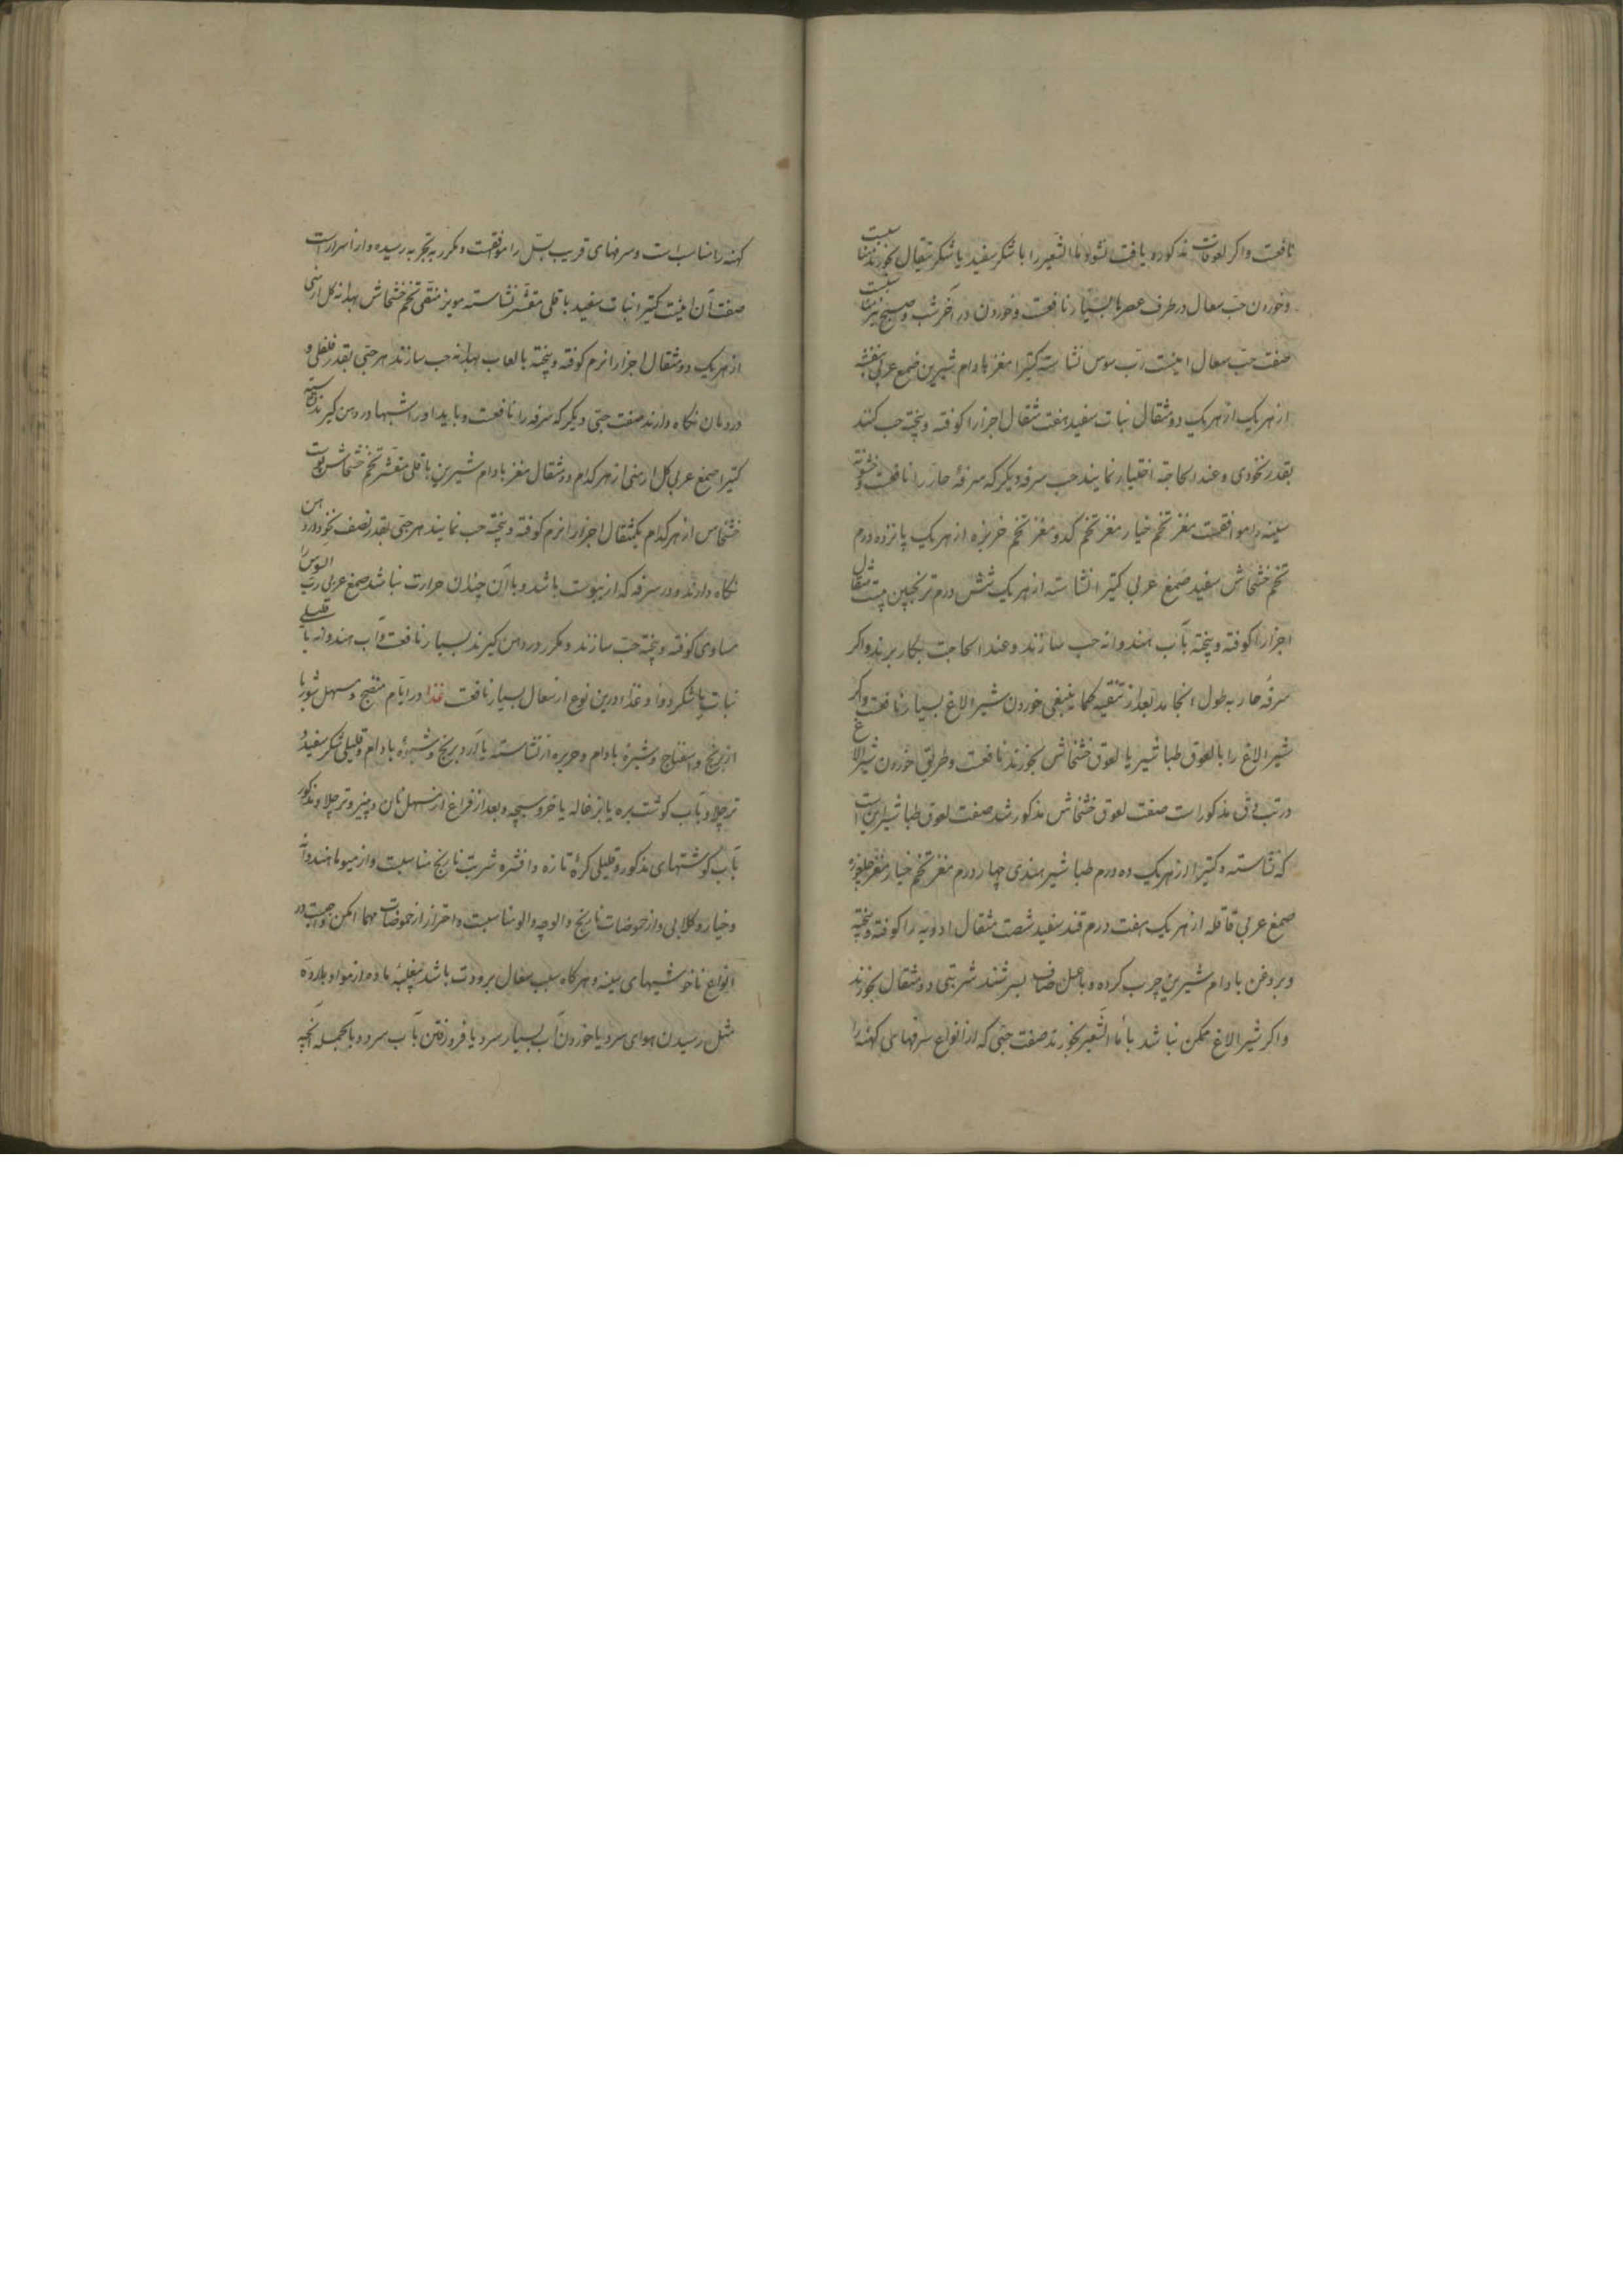 نافعست و اکر لعوقات مذکوره یافت نشود ماء الشعیر را با شکر سفید یا شکر تیغال بخورند مناسبست
و خوردن حب سعال در طرف عصرها بسیار نافعست و خوردن در آخر شب و صبح نیز مناسبست
صفت حب سعال اینست رب سوس نشاسته کتیرا مغز بادام شیرین صمغ عربی بنفشه
از هر یک از هر یک دو مثقال نبات سفید هفت مثقال اجزا را کوفته و پخته حب کنند
بقدر نخودی و عند الحاجة اختیار نمایند حب سرفه دیکر که سرفهٔ حار را نافعست و خشونة
سینه را موافقست مغز تخم خیار مغز تخم کدو مغز تخم خربزه از هر یک پانزده درم
تخم خشخاش سفید صمغ عربی کتیرا نشاسته از هر یک شش درم ترنجبین بیست مثقال
اجزا را کوفته و پخته بآب هندوانه حب سازند و عند الحاجت بکار برند و اکر
سرفهٔ حار به طول انجامد بعد از تنقیه کما ینبغی خوردن شیر الاغ بسیار نافعست و اکر
شیر الاغ را با لعوق طباشیر یا لعوق خشخاش بخورند نافعست و طریق خوردن شیر الاغ
در تب دق مذکور است صفت لعوق خشخاش مذکور شد صفت لعوق طباشیر این است
که نشاسته و کتیرا از هر یک ده درم طباشیر هندی چهار درم مغز تخم خیار مغز چلغوزه
صمغ عربی قاقله از هر یک هفت درم قند سفید شصت مثقال ادویه را کوفته و پخته
و بروغن بادام شیرین چرب کرده و با عسل صاف بسرشند شربتی دو مثقال بخورند
و اکر شیر الاغ ممکن نباشد با ماء الشعیر بخورند صفت حبی که از انواع سرفهای کهنه را
کهنه را مناسب است و سرفهای قریب بسل را موافقست و مکرر به تجربه رسیده و از اسرار است
صفت آن اینست کتیرا نبات سفید باقلی مقشر نشاسته مویز منقی تخم خشخاش بهدانه کل ارمنی
از هر یک دو مثقال اجزا را نرم کوفته و پخته بالعاب بهدانه حب سازند هر حبی بقدر فلفلی و
در دهان نکاه دارند صفت حبی دیکر که سرفه را نافعست و باید او را شبها در دهن کیرند نشاسته
کتیرا صمغ عربی کل ارمنی از هر کدام دو مثقال مغز بادام شیرین باقلی مقشر تخم خشخاش پوست
خشخاش از هر کدام یکمثقال اجزا را نرم کوفته و پخته حب نمایند هر حبی بقدر نصف نخود و در دهن
نکاه دارند و در سرفه که از یبوست باشد و با آن چندان حرارت نباشد صمغ عربی رب السوس را
مساوی کوفته و پخته حب سازند و مکرر در دهن کیرند بسیار نافعست و آب هندوانه با قلیلی
نبات یا شکر دوا و غذا درین نوع از سعال بسیار نافعست غذا در ایام منضج و مسهل شوربا
از برنج و اسفناج و شیرهٔ بادام و حریره از نشاسته یا آرد برنج و شیرهٔ بادام و قلیلی شکر سفید و
تر چلاو بآب کوشت بره یا بزغاله یا خروسبچه و بعد از فراغ از مسهل نان و پنیر و تر چلاو مذکور
بآب کوشتهای مذکور و قلیلی کرهٔ تازه و افشره شربت نارنج مناسبست و از میوها هندوانه
و خیار و کلابی و از حموضات نارنج و الوچه و الو مناسبست و احتراز از حموضات مهما امکن واجبست در
انواع ناخوشیهای سینه و هرکاه سبب سعال برودت باشد بیغلبهٔ ماده از مواد بارده
مثل رسیدن هوای سرد یا خوردن آب بسیار سرد یا فرو رفتن بآب سرد و بالجمله آنچه